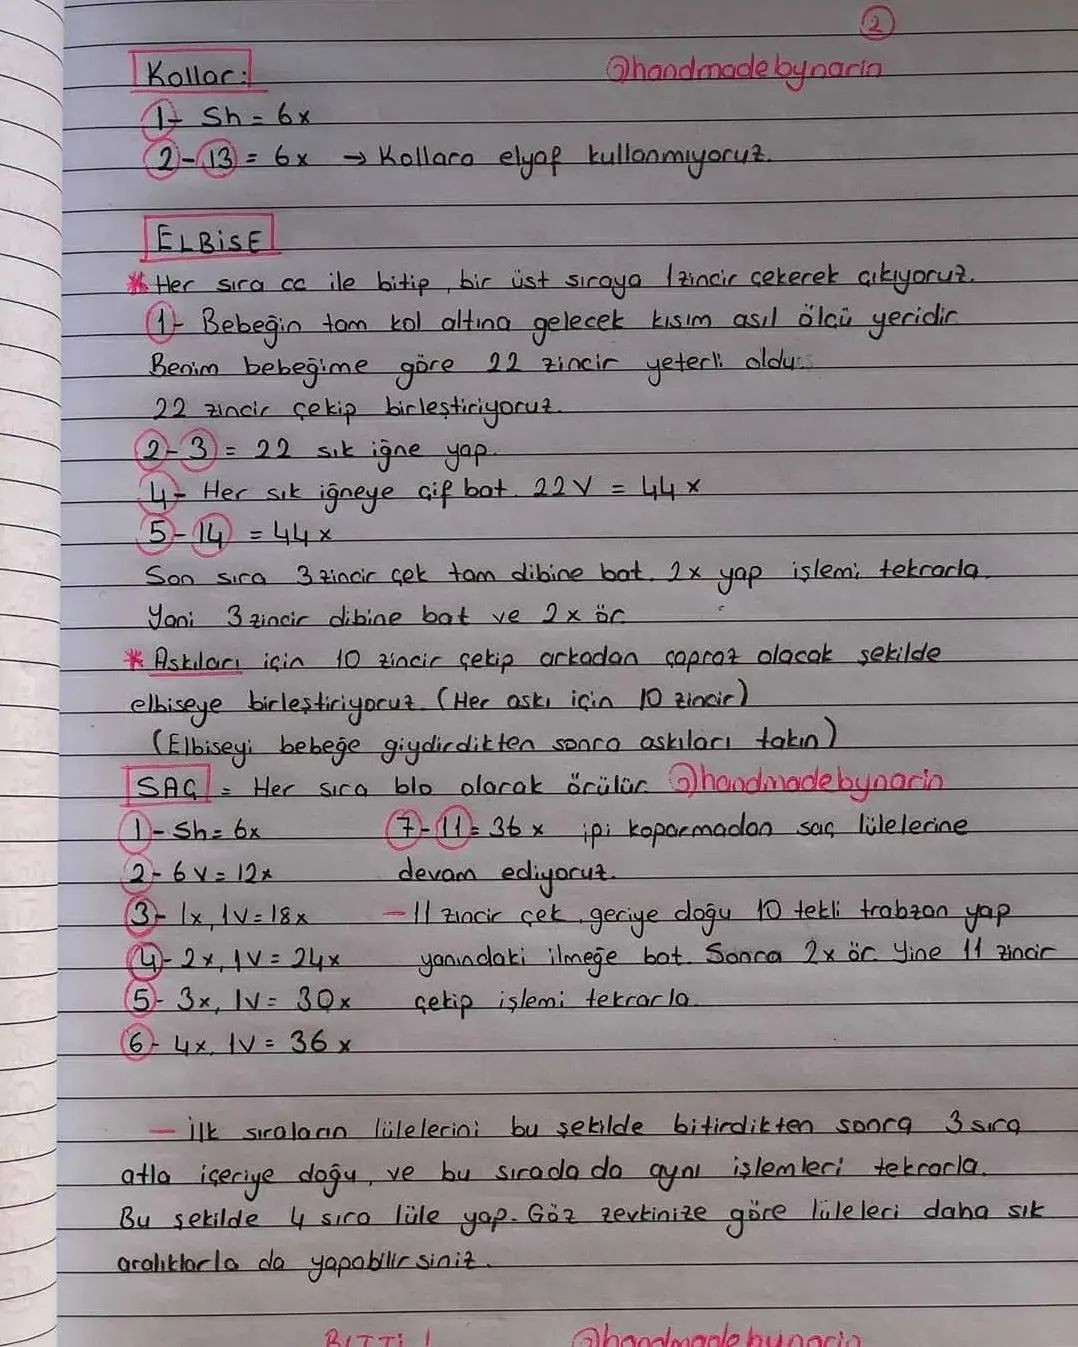 2
Kollar:
@handmadebynarin
1- Sh = 6x
2-13 = 6x → Kollara elyaf kullanmıyoruz.
ELBİSE
* Her sıra cc ile bitip, bir üst sıraya 1 zincir çekerek çıkıyoruz.
1- Bebeğin tam kol altına gelecek kısım asıl ölçü yeridir
Benim bebeğime göre 22 zincir yeterli oldu.
22 zincir çekip birleştiriyoruz.
2-3 = 22 sık iğne yap.
4- Her sık iğneye çif bat. 22V = 44x
5-14 = 44x
Son sıra 3 zincir çek tam dibine bat. 2x yap işlemi tekrarla.
Yani 3 zincir dibine bat ve 2x ör.
* Askıları için 10 zincir çekip arkadan çapraz olacak şekilde
elbiseye birleştiriyoruz. (Her askı için 10 zincir)
(Elbiseyi bebeğe giydirdikten sonra askıları takın)
SAÇ = Her sıra blo olarak örülür. @handmadebynarin
1- Sh = 6x
2- 6V = 12x
3- 1x, 1V = 18x
4- 2x, 1V = 24x
5- 3x, 1V = 30x
6- 4x, 1V = 36x
7-11 = 36x ipi koparmadan saç lülelerine
devam ediyoruz.
- 11 zincir çek, geriye doğu 10 tekli trabzan yap
yanındaki ilmeğe bat. Sonra 2x ör. Yine 11 zincir
çekip işlemi tekrarla.
- İlk sıraların lülelerini bu şekilde bitirdikten sonra 3 sıra
atla içeriye doğu, ve bu sırada da aynı işlemleri tekrarla.
Bu şekilde 4 sıra lüle yap. Göz zevkinize göre lüleleri daha sık
aralıklarla da yapabilirsiniz.
BİTTİ !
@handmadebynarin